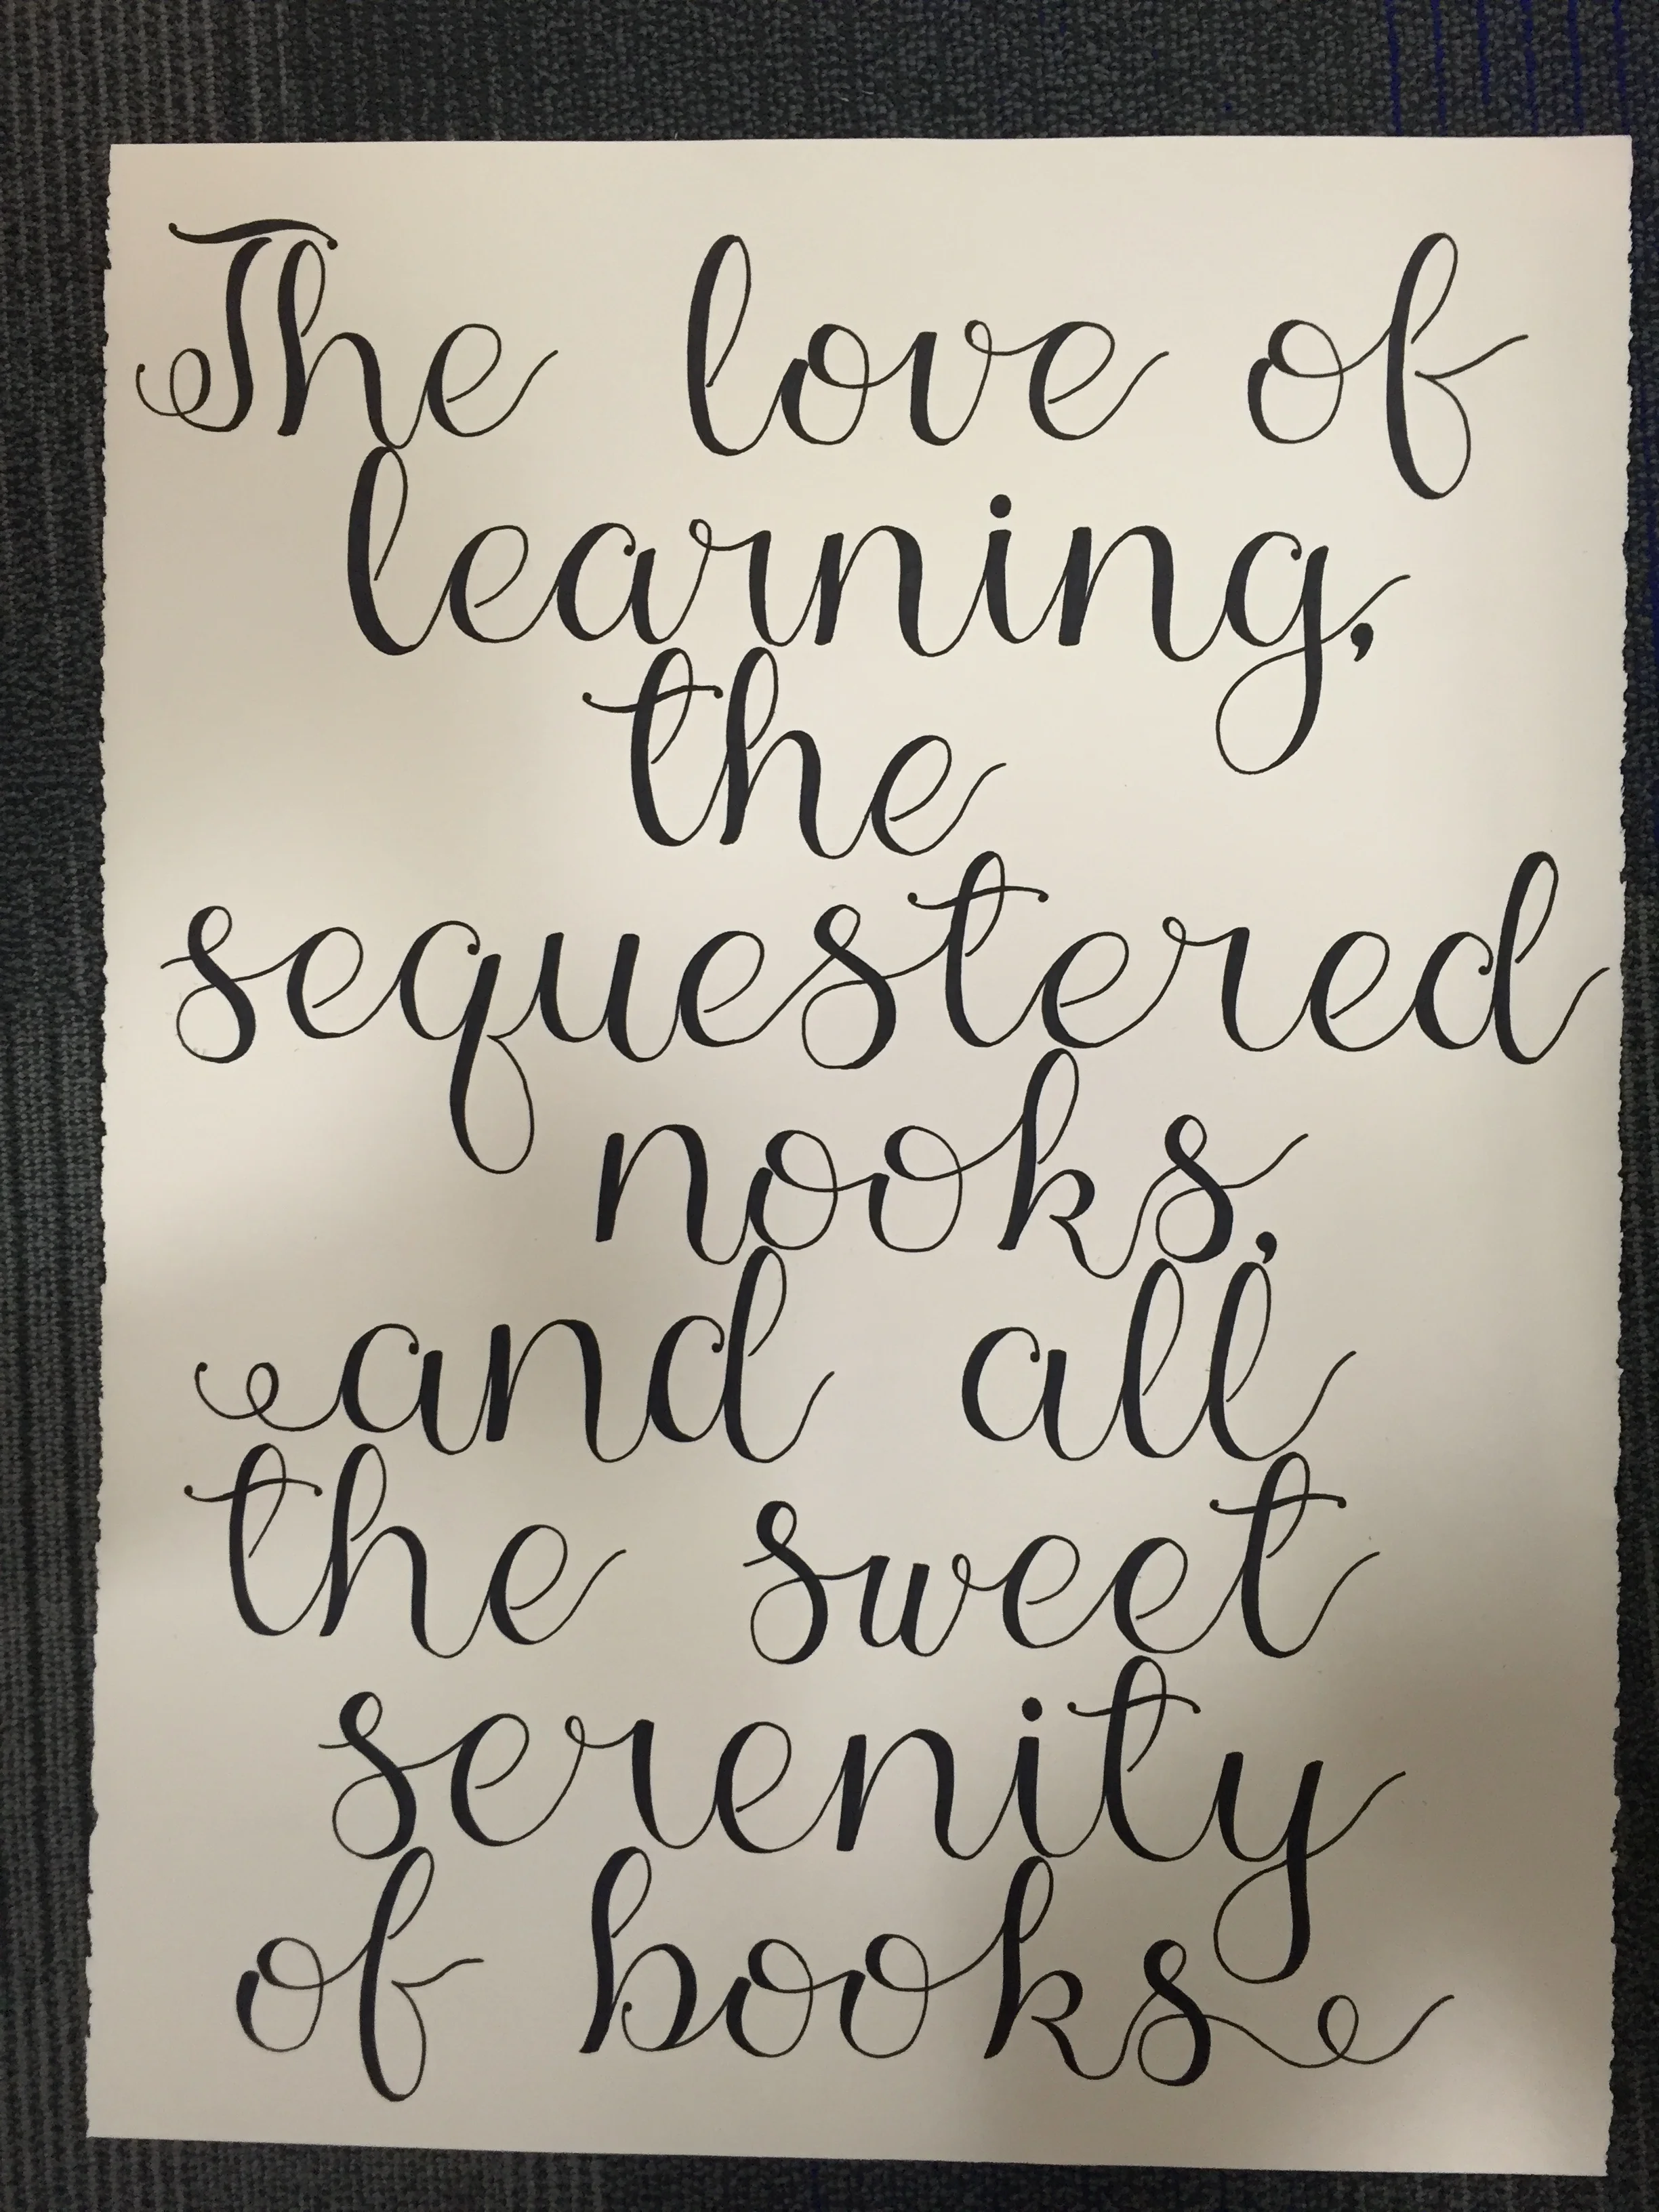 The love of
learning,
the
sequestered
nooks,
and all
the sweet
serenity
of books